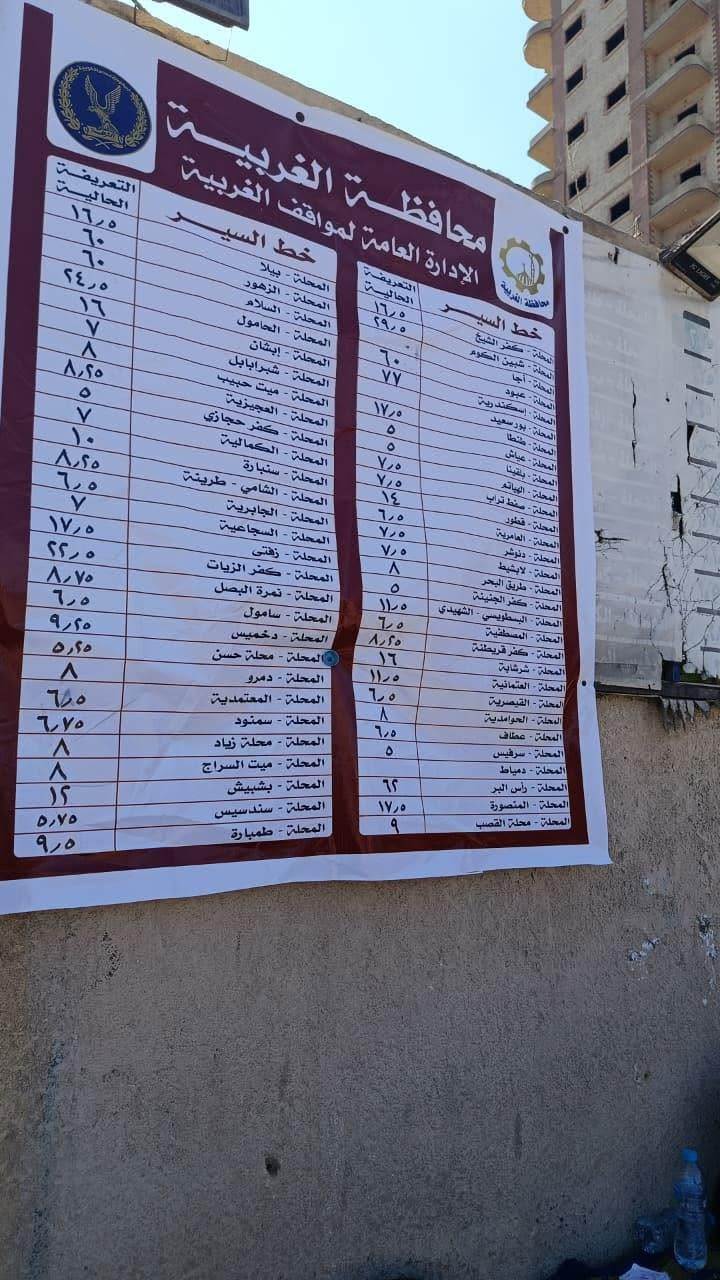 محافظة الغربية
الإدارة العامة لمواقف الغربية
محافظة الغربية
خط السير التعريفة الحالية
المحلة - كفر الشيخ ١٦٫٥
المحلة - شبين الكوم ٢٩٫٥
المحلة - أجا
المحلة - عبود ٦٠
المحلة - إسكندرية ٧٧
المحلة - بور سعيد
المحلة - طنطا ١٧٫٥
المحلة - عياش ٥
المحلة - بلقينا ٥
المحلة - الهياتم ٧٫٥
المحلة - صفط تراب ٧٫٥
المحلة - قطور ١٤
المحلة - العامرية ٦٫٥
المحلة - دنوشر ٧٫٥
المحلة - لابشيط ٧٫٥
المحلة - طريق البحر ٨
المحلة - كفر الجنينة ٥
المحلة - البسطويسي - الشهيدي ١١٫٥
المحلة - المصطفية ٦٫٥
المحلة - كفر قريطنة ٨٫٢٥
المحلة - شرشابة ١٦
المحلة - العثمانية ١١٫٥
المحلة - القيصرية ٦٫٥
المحلة - الحوامدية ٨
المحلة - عطاف ٦٫٥
المحلة - سرفيس ٥
المحلة - دمياط
المحلة - رأس البر ٦٢
المحلة - المنصورة ١٧٫٥
المحلة - محلة القصب ٩
خط السير التعريفة الحالية
المحلة - بيلا ١٦٫٥
المحلة - الزهور ٦٠
المحلة - السلام ٦٠
المحلة - الحامول ٢٤٫٥
المحلة - إبشان ١٦
المحلة - شبرابابل ٧
المحلة - ميت حبيب ٨
المحلة - العجيزية ٨٫٢٥
المحلة - كفر حجازي ٥
المحلة - الكمالية ٧
المحلة - سنبارة ١٠
المحلة - الشامي - طرينة ٨٫٢٥
المحلة - الجابرية ٦٫٥
المحلة - السجاعية ٧
المحلة - زفتى ١٧٫٥
المحلة - كفر الزيات ٢٢٫٥
المحلة - نمرة البصل ٨٫٧٥
المحلة - سامول ٦٫٥
المحلة - دخميس ٩٫٢٥
المحلة - محلة حسن ٥٫٢٥
المحلة - دمرو ٨
المحلة - المعتمدية ٦٫٥
المحلة - سمنود ٦٫٧٥
المحلة - محلة زياد ٨
المحلة - ميت السراج ٨
المحلة - بشبيش ١٢
المحلة - سندسيس ٥٫٧٥
المحلة - طمبارة ٩٫٥